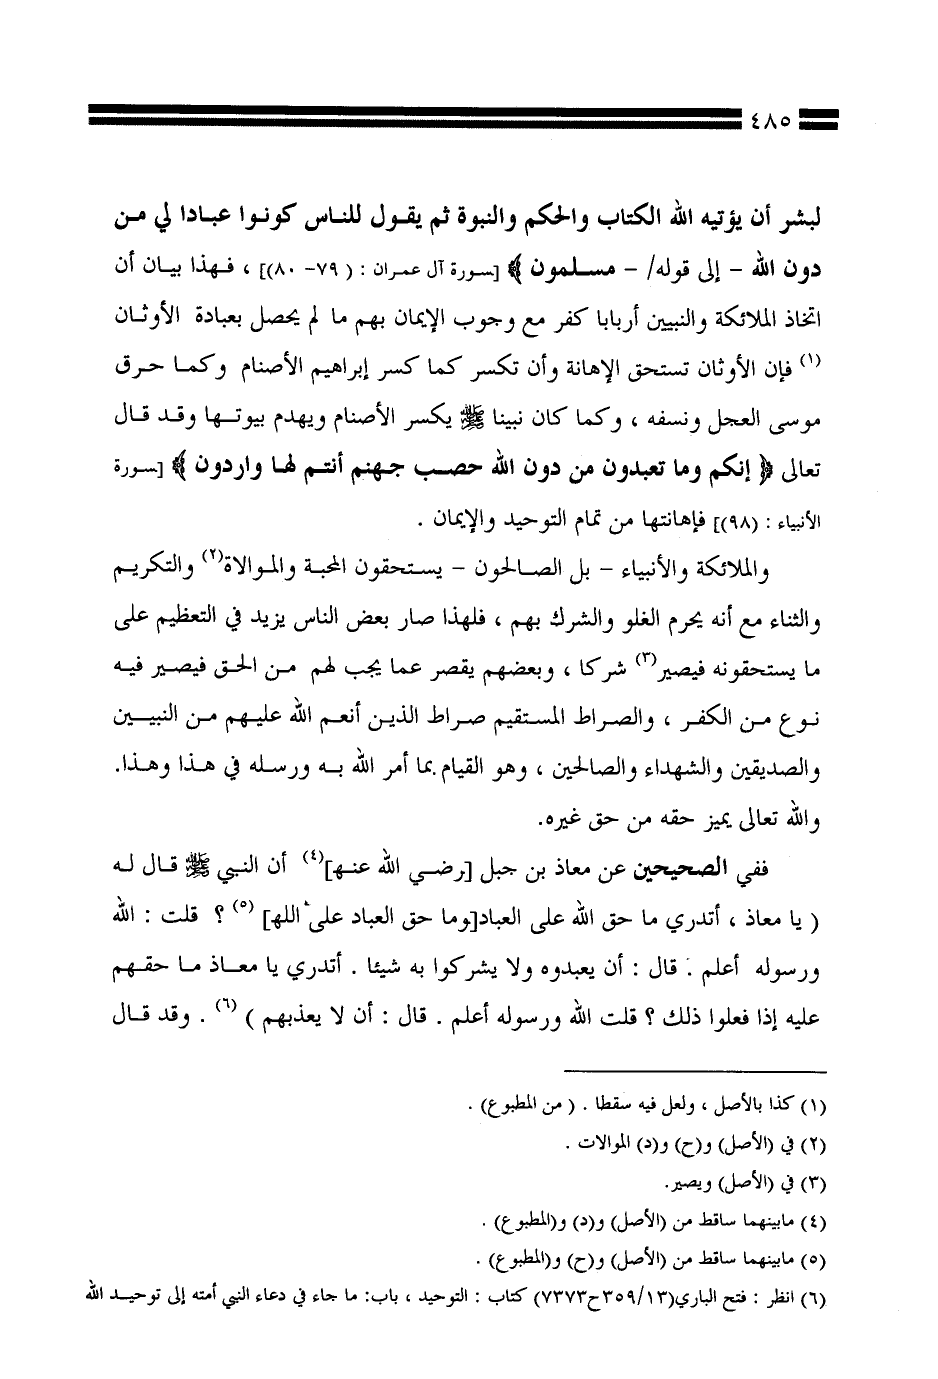 ٤٨٥
لبشر أن يؤتيه الله الكتاب والحكم والنبوة ثم يقول للناس كونوا عبادا لي من
دون الله – إلى قوله/ – مسلمون ﴾ [سورة آل عمران : ( ٧٩– ٨٠)] ، فهذا بيان أن
اتخاذ الملائكة والنبيين أربابا كفر مع وجوب الإيمان بهم ما لم يحصل بعبادة الأوثان
(١) فإن الأوثان تستحق الإهانة وأن تكسر كما كسر إبراهيم الأصنام وكما حرق
موسى العجل ونسفه ، وكما كان نبينا ﷺ يكسر الأصنام ويهدم بيوتها وقد قال
تعالى ﴿ إنكم وما تعبدون من دون الله حصب جهنم أنتم لها واردون ﴾ [سورة
الأنبياء : (٩٨)] فإهانتها من تمام التوحيد والإيمان .
والملائكة والأنبياء – بل الصالحون – يستحقون المحبة والموالاة(٢) والتكريم
والثناء مع أنه يحرم الغلو والشرك بهم ، فلهذا صار بعض الناس يزيد في التعظيم على
ما يستحقونه فيصير(٣) شركا ، وبعضهم يقصر عما يجب لهم من الحق فيصير فيه
نوع من الكفر ، والصراط المستقيم صراط الذين أنعم الله عليهم من النبيين
والصديقين والشهداء والصالحين ، وهو القيام بما أمر الله به ورسله في هذا وهذا.
والله تعالى يميز حقه من حق غيره.
ففي الصحيحين عن معاذ بن جبل [رضي الله عنه](٤) أن النبي ﷺ قال له
( يا معاذ ، أتدري ما حق الله على العباد[وما حق العباد على الله] (٥) ؟ قلت : الله
ورسوله أعلم . قال : أن يعبدوه ولا يشركوا به شيئا . أتدري يا معاذ ما حقهم
عليه إذا فعلوا ذلك ؟ قلت الله ورسوله أعلم . قال : أن لا يعذبهم ) (٦) . وقد قال
(١) كذا بالأصل ، ولعل فيه سقطا . ( من المطبوع) .
(٢) في (الأصل) و(ح) و(د) الموالات .
(٣) في (الأصل) ويصير.
(٤) مابينهما ساقط من (الأصل) و(د) و(المطبوع) .
(٥) مابينهما ساقط من (الأصل) و(ح) و(المطبوع) .
(٦) انظر : فتح الباري(٣٥٩/١٣ح٧٣٧٣) كتاب : التوحيد ، باب: ما جاء في دعاء النبي أمته إلى توحيد الله